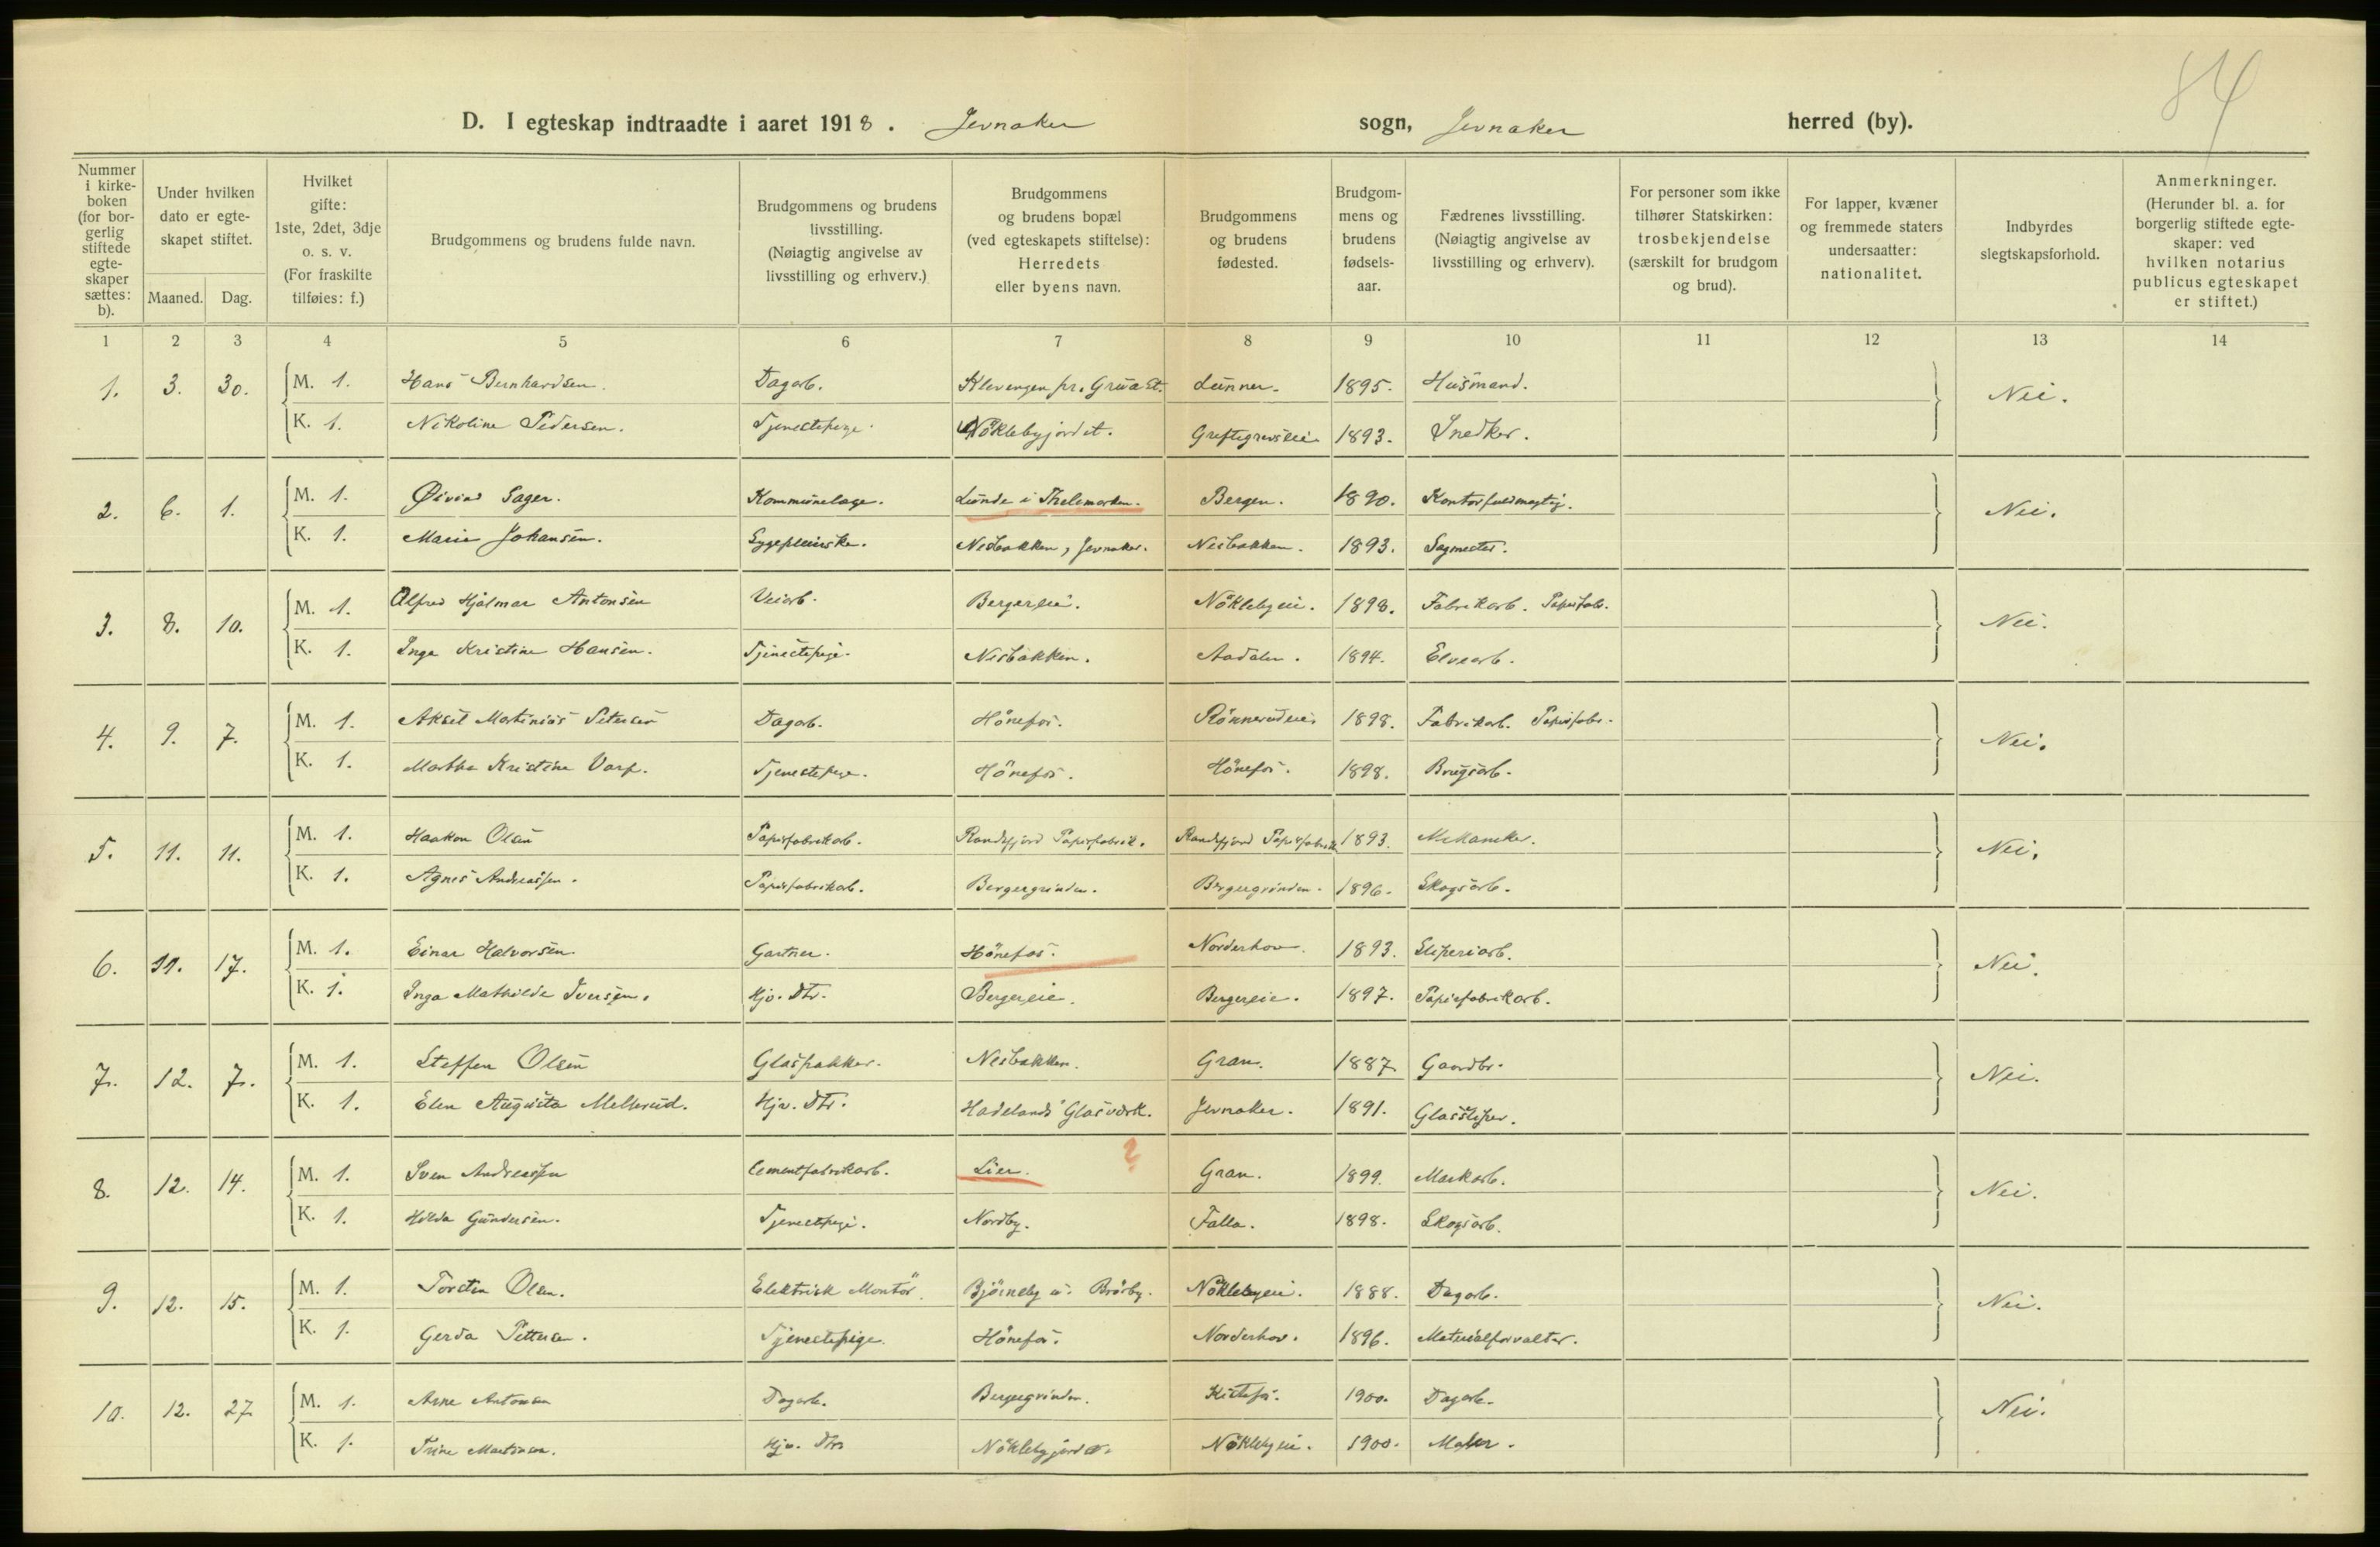 84
D. I egteskap indtraadte i aaret 1918. Jevnaker sogn, Jevnaker herred (by).
Nummer i kirke-boken (for bor-gerlig stiftede egte-skaper sættes: b).
Under hvilken dato er egte-skapet stiftet.
Maaned. Dag.
Hvilket gifte: 1ste, 2det, 3dje o. s. v. (For fraskilte tilføies: f.)
Brudgommens og brudens fulde navn.
Brudgommens og brudens livsstilling. (Nøiagtig angivelse av livsstilling og erhverv.)
Brudgommens og brudens bopæl (ved egteskapets stiftelse): Herredets eller byens navn.
Brudgommens og brudens fødested.
Brudgom-mens og brudens fødsels-aar.
Fædrenes livsstilling. (Nøiagtig angivelse av livsstilling og erhverv).
For personer som ikke tilhører Statskirken: trosbekjendelse (særskilt for brudgom og brud).
For lapper, kvæner og fremmede staters undersaatter: nationalitet.
Indbyrdes slegtskapsforhold.
Anmerkninger. (Herunder bl. a. for borgerlig stiftede egte-skaper: ved hvilken notarius publicus egteskapet er stiftet.)
1 2 3 4 5 6 7 8 9 10 11 12 13 14
1. 3. 30. M. 1. Hans Bernhardsen. Dagarb. Klevengen pr. Grua St. Lunner. 1895. Husmand. Nei.
K. 1. Nikoline Pedersen. Tjenestepige. Nöklebyjordet. 1893. Snedker.
2. 6. 1. M. 1. Øivind Sager. Kommunelæge. Lunde i Thelemarken. Bergen. 1890. Kontorfuldmægtig. Nei.
K. 1. Marie Johansen. Sygepleierske. Nesbakken, Jevnaker. Nesbakken. 1893. Sagmester.
3. 8. 10. M. 1. Alfred Hjalmar Antonsen Veiarb. Bergereie. Nöklebyeie. 1898. Fabrikarb. Papirfabr. Nei.
K. 1. Inga Kristine Hansen. Tjenestepige. Nesbakken. Aadalen. 1894. Elvearb.
4. 9. 7. M. 1. Aksel Martinius Petersen Dagarb. Hönefos. Rönnerudeie 1898. Fabrikarb. Papirfabr. Nei.
K. 1. Martha Kristine Varp. Tjenestepige. Hönefos. Hönefos. 1898. Brugsarb.
5. 11. 11. M. 1. Haakon Olsen Papirfabrikarb. Randsfjord Papirfabrik. Randsfjord Papirfabrik 1893. Mekaniker. Nei.
K. 1. Agnes Andreassen. Papirfabrikarb. Bergergrinden. Bergergrinden. 1896. Skogsarb.
6. 11. 17. M. 1. Einar Halvorsen. Gartner. Hönefos. Norderhov. 1893. Sliperiarb. Nei.
K. 1. Inga Mathilde Iversen. Hjv. Dtr. Bergereie. Bergereie. 1897. Papirfabrikarb.
7. 12. 7. M. 1. Steffen Olsen Glaspakker. Nesbakken. Gran. 1887. Gaardbr. Nei.
K. 1. Elen Augusta Mellerud. Hjv. Dtr. Hadelands Glasværk. Jevnaker. 1891. Glassliper.
8. 12. 14. M. 1. Sven Andreassen Cementfabrikarb. Lier. ? Gran. 1899. Markarb. Nei.
K. 1. Hilda Gundersen. Tjenestepige. Nordby. Falla. 1898. Skogsarb.
9. 12. 15. M. 1. Torsten Olsen. Elektrisk Montör. Björneby i Brörby. Nöklebyeie. 1888. Dagarb. Nei.
K. 1. Gerda Pettersen. Tjenestepige. Hönefos. Norderhov. 1896. Materialforvalter.
10. 12. 27 M. 1. Arne Antonsen Dagarb. Bergergrinden. Kistefos. 1900. Dagarb. Nei.
K. 1. Trine Martinsen. Hjv. Dtr Nöklebyjordet. Nöklebyeie. 1900. Maler.